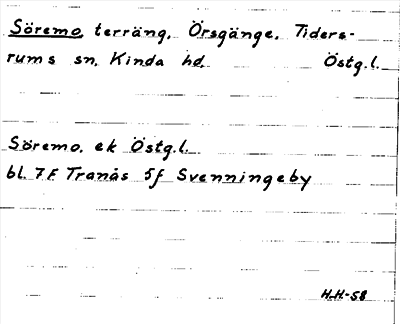 Söremo, terräng, Örsgänge, Tiders-
rums sn, Kinda hd, Östg.l.
Söremo, ek Östg.l.
bl. 7F Tranås 5f Svenningeby
H.H-58